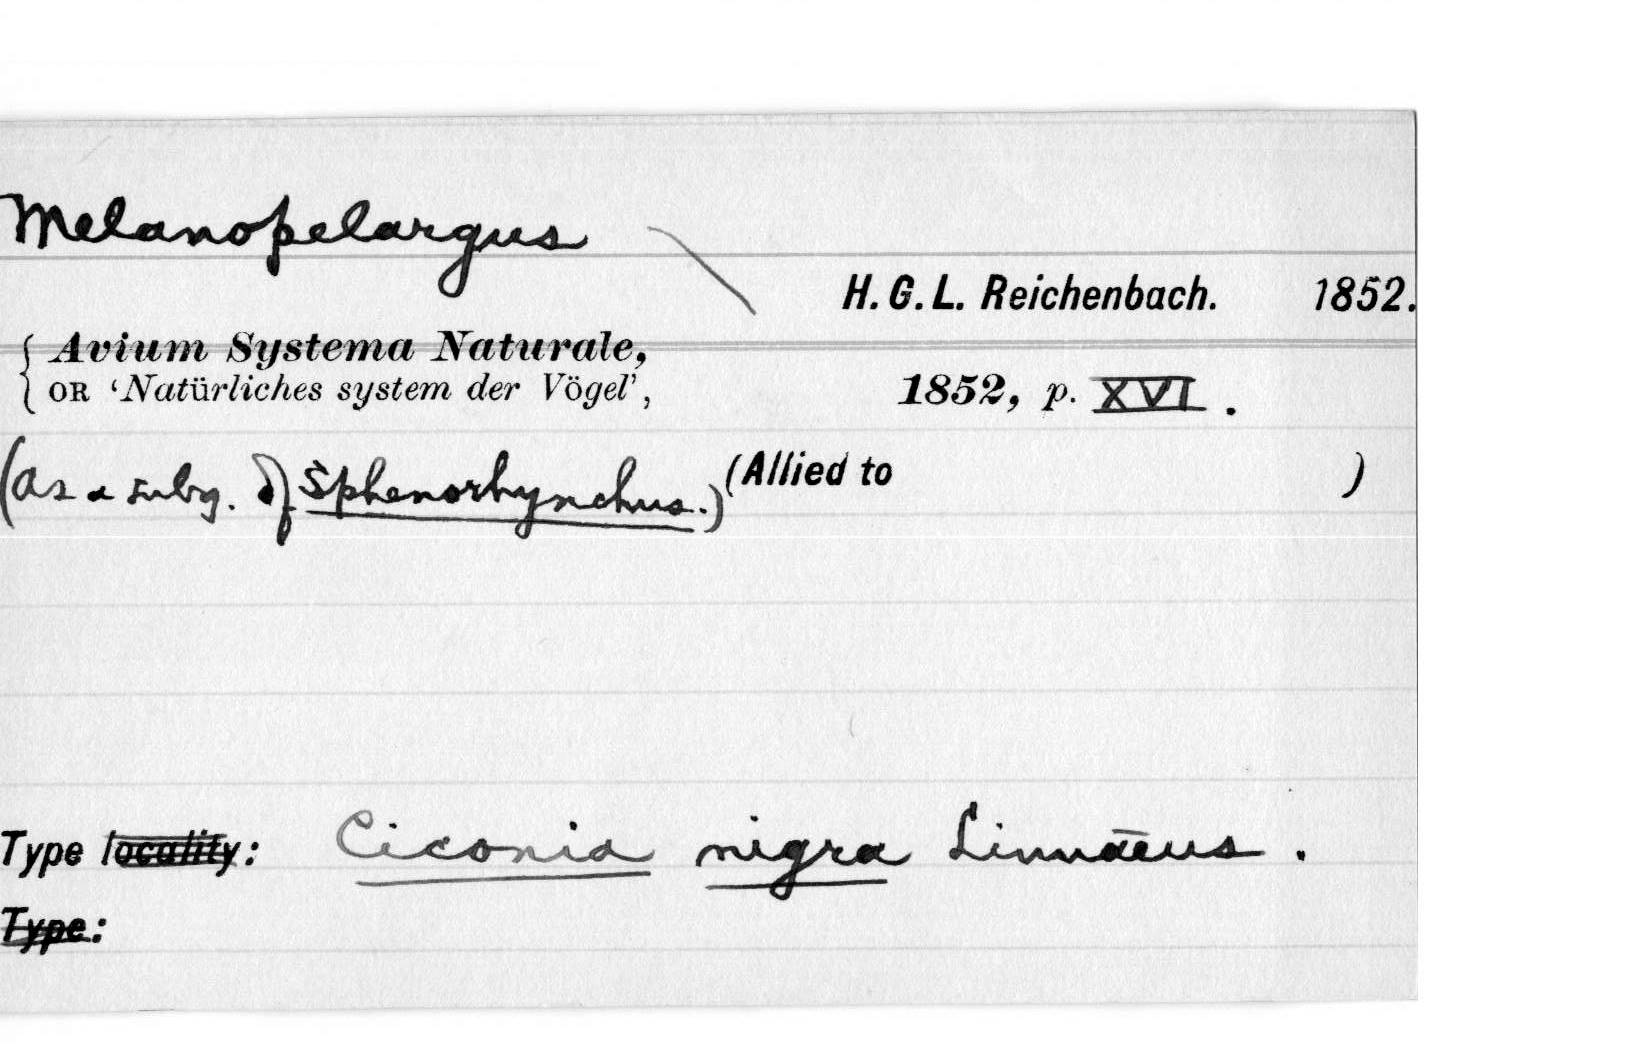 Melanopelargus
H. G. L. Reichenbach. 1852.
Avium Systema Naturale,
OR ‘Natürliches system der Vögel’, 1852, p. XVI.
(As a subg. of Sphenorhynchus.) (Allied to )
Type locality: Ciconia nigra Linnaeus.
Type: